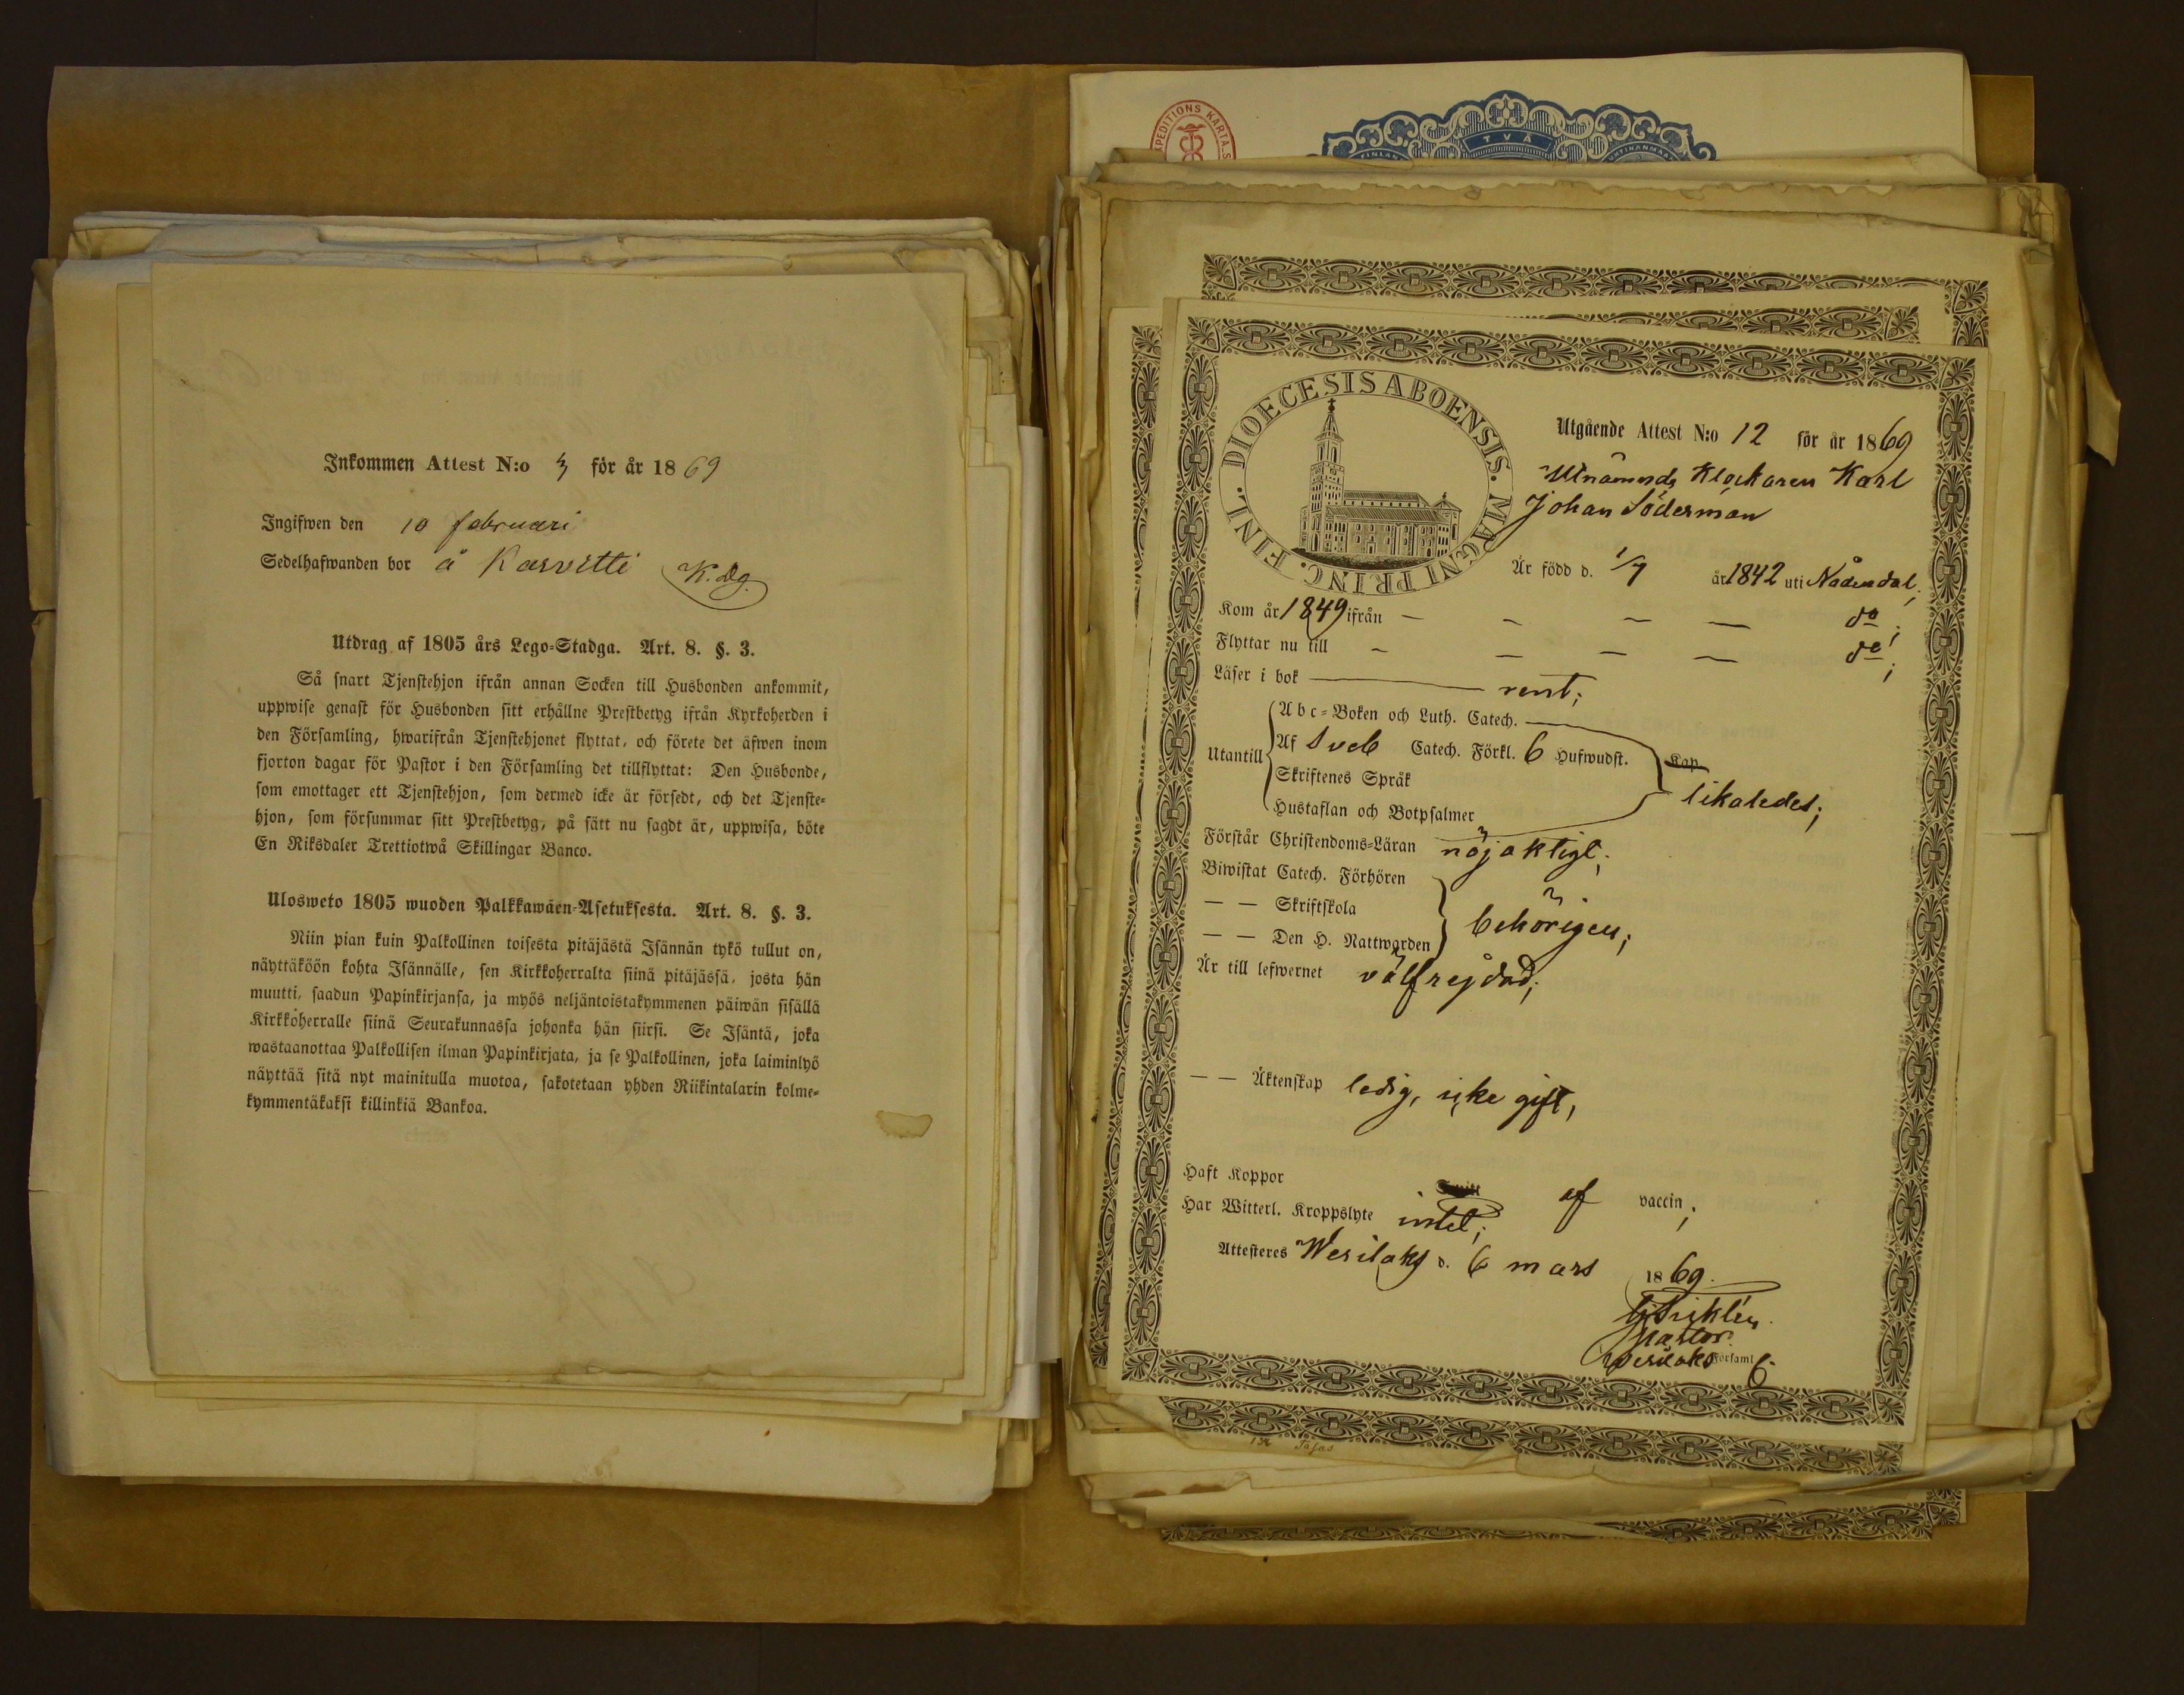 Inkommen Attest N:o 3 för år 1869
Ingifwen den 10 februari
Sedelhafwanden bor å Karvetti K. Dg.
Utdrag af 1805 års Lego-Stadga. Art. 8. §. 3.
Så snart Tjenstehjon ifrån annan Socken till Husbonden ankommit,
uppwise genast för Husbonden sitt erhållne Prestbetyg ifrån Kyrkoherden i
den Församling, hwarifrån Tjenstehjonet flyttat, och förete det äfwen inom
fjorton dagar för Pastor i den Församling det tillflyttat: Den Husbonde,
som emottager ett Tjenstehjon, som dermed icke är försedt, och det Tjenste-
hjon, som försummar sitt Prestbetyg, på sätt nu sagdt är, uppwisa, böte
En Riksdaler Trettiotwå Skillingar Banco.
Ulosweto 1805 wuoden Palkkawäen-Asetuksesta. Art. 8. §. 3.
Niin pian kuin Palkollinen toisesta pitäjästä Isännän tykö tullut on,
näyttäköön kohta Isännälle, sen Kirkkoherralta siinä pitäjässä, josta hän
muutti, saadun Papinkirjansa, ja myös neljäntoistakymmenen päiwän sisällä
Kirkkoherralle siinä Seurakunnassa johonka hän siirsi. Se Isäntä, joka
wastaanottaa Palkollisen ilman Papinkirjata, ja se Palkollinen, joka laiminlyö
näyttää sitä nyt mainitulla muotoa, sakotetaan yhden Riikintalarin kolme-
kymmentäkaksi killinkiä Bankoa.
TVÅ
DIOECESIS ABOENSIS. MAGNI PRINC. FINL.
Utgående Attest N:o 12 för år 1869
Utnämnde Klockaren Karl
Johan Söderman
Är född d. 1/7 år 1842 uti Nådendal;
Kom år 1849 ifrån — — — — do;
Flyttar nu till — — — — do;
Läser i bok rent;
Utantill
Abc-Boken och Luth. Catech.
Af Sveb Catech. Förkl. 6 Hufwudst. Kap
Skriftenes Språk
likaledes;
Hustaflan och Botpsalmer
Förstår Christendoms-Läran nöjaktigt;
Biwistat Catech. Förhören
— — Skriftskola
behörigen;
— — Den H. Nattwarden
Är till lefwernet välfrejdad;
— — Äktenskap ledig, icke gift,
Haft Koppor af vaccin;
Har Witterl. Kroppslyte intet;
Attesteres Wesilaks d. 6 mars 1869.
Pastor.
Wesilaks Församl